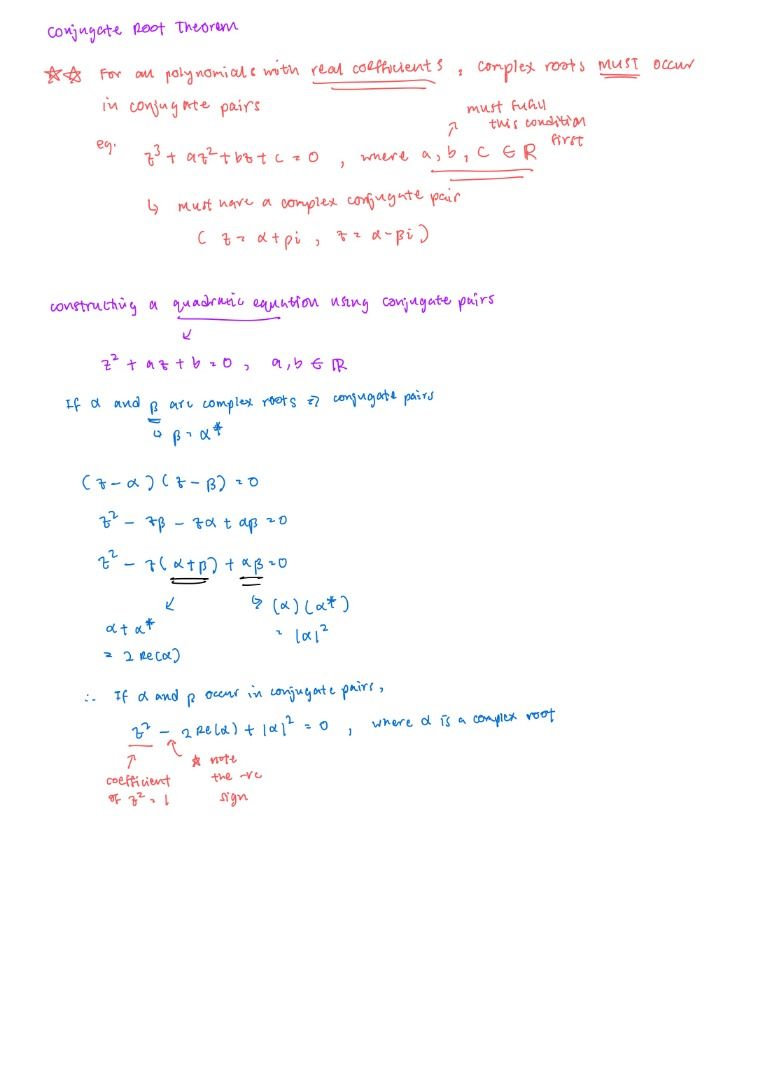 Conjugate Root Theorem
☆☆ For all polynomials with real coefficients, complex roots MUST occur
in conjugate pairs
must fulfil
this condition
first
eg. z³ + az² + bz + c = 0 , where a, b, c ∈ ℝ
↳ must have a complex conjugate pair
( z = α + βi , z = α - βi )
constructing a quadratic equation using conjugate pairs
z² + az + b = 0 , a, b ∈ ℝ
If α and β are complex roots ⇒ conjugate pairs
↳ β = α*
(z - α)(z - β) = 0
z² - zβ - zα + αβ = 0
z² - z(α+β) + αβ = 0
α + α*
= 2 Re(α)
↳ (α)(α*)
= |α|²
∴ If α and β occur in conjugate pairs,
z² - 2 Re(α) + |α|² = 0 , where α is a complex root
coefficient
of z² = 1
☆ note
the -ve
sign